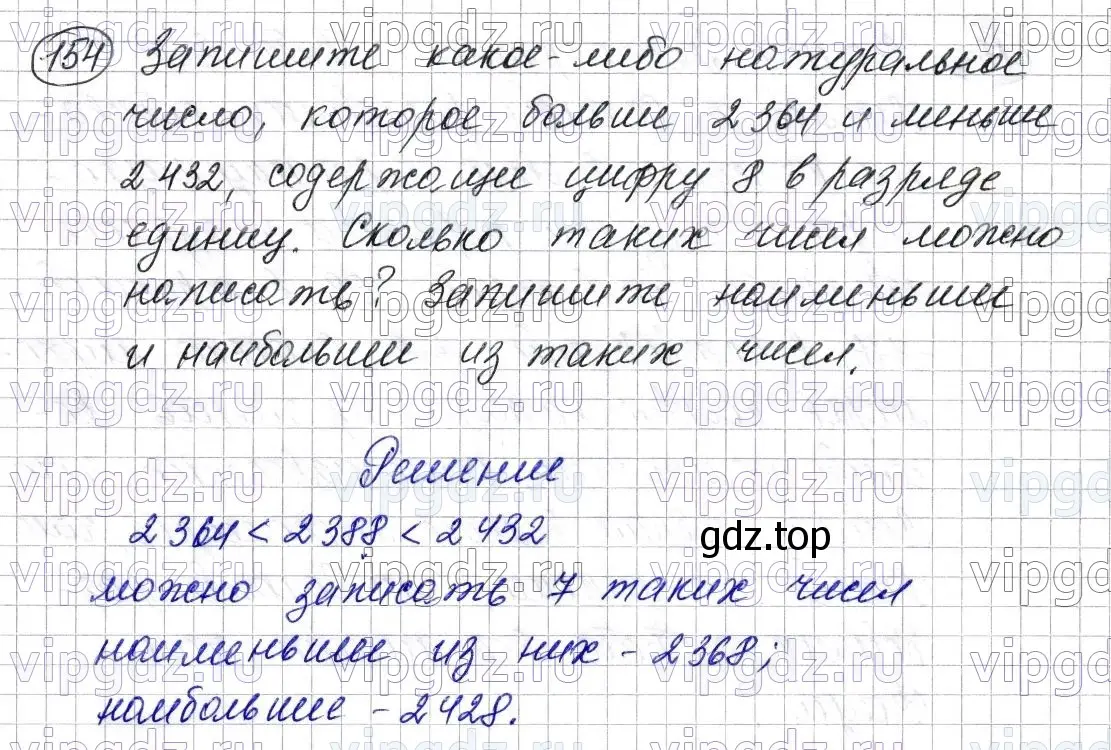 154 Запишите какое-либо натуральное
число, которое больше 2364 и меньше
2432, содержащее цифру 8 в разряде
единиц. Сколько таких чисел можно
написать? Запишите наименьшее
и наибольшее из таких чисел.
Решение
2364 < 2388 < 2432
gdz.top
можно записать 7 таких чисел
наименьшее из них - 2368;
наибольшее - 2428.
vipgdz.ru